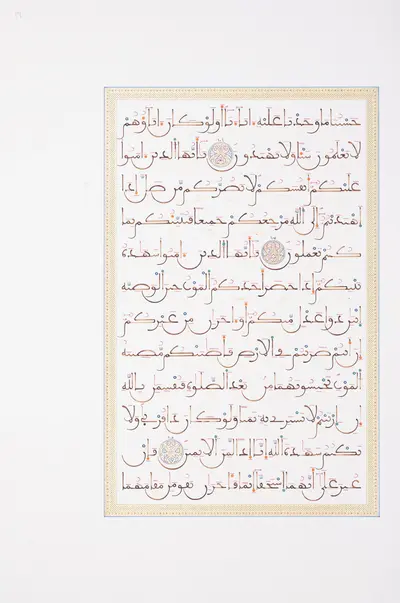 حسبنا ما وجدنا عليه ءاباءنا أولو كان ءاباؤهم
لا يعلمون شيئا ولا يهتدون يأيها الذين ءامنوا
عليكم أنفسكم لا يضركم من ضل إذا
اهتديتم إلى الله مرجعكم جميعا فينبئكم بما
كنتم تعملون يأيها الذين ءامنوا شهدة
بينكم إذا حضر أحدكم الموت حين الوصية
اثنن ذوا عدل منكم أو ءاخرن من غيركم
إن أنتم ضربتم في الأرض فأصبتكم مصيبة
الموت تحبسونهما من بعد الصلوة فيقسمن بالله
إن ارتبتم لا نشتري به ثمنا ولو كان ذا قربى ولا
نكتم شهدة الله إنا إذا لمن الأثمين فإن
عثر على أنهما استحقا إثما فـٔاخرن يقومن مقامهما